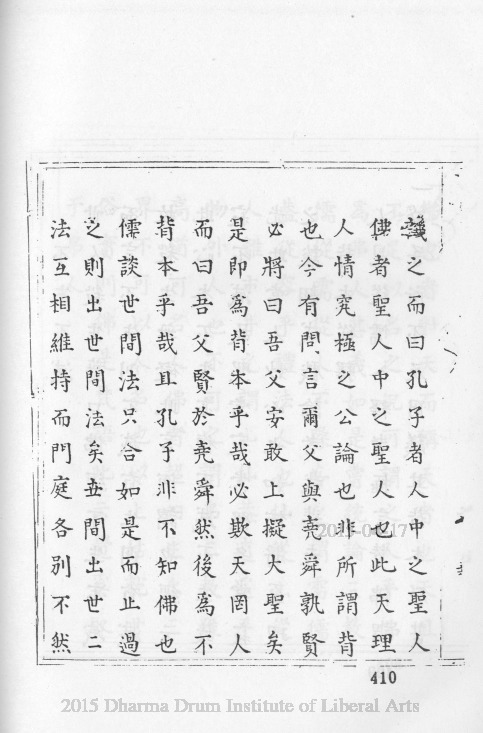 譏之而曰孔子者人中之聖人
佛者聖人中之聖人也此天理
人情究極之公論也非所謂背
也今有問言爾父與堯舜孰賢
必將曰吾父安敢上擬大聖矣
是即為背本乎哉必欺天罔人
而曰吾父賢於堯舜然後為不
背本乎哉且孔子非不知佛也
儒談世間法只合如是而止過
之則出世間法矣世間出世二
法互相維持而門庭各別不然
410
2015 Dharma Drum Institute of Liberal Arts